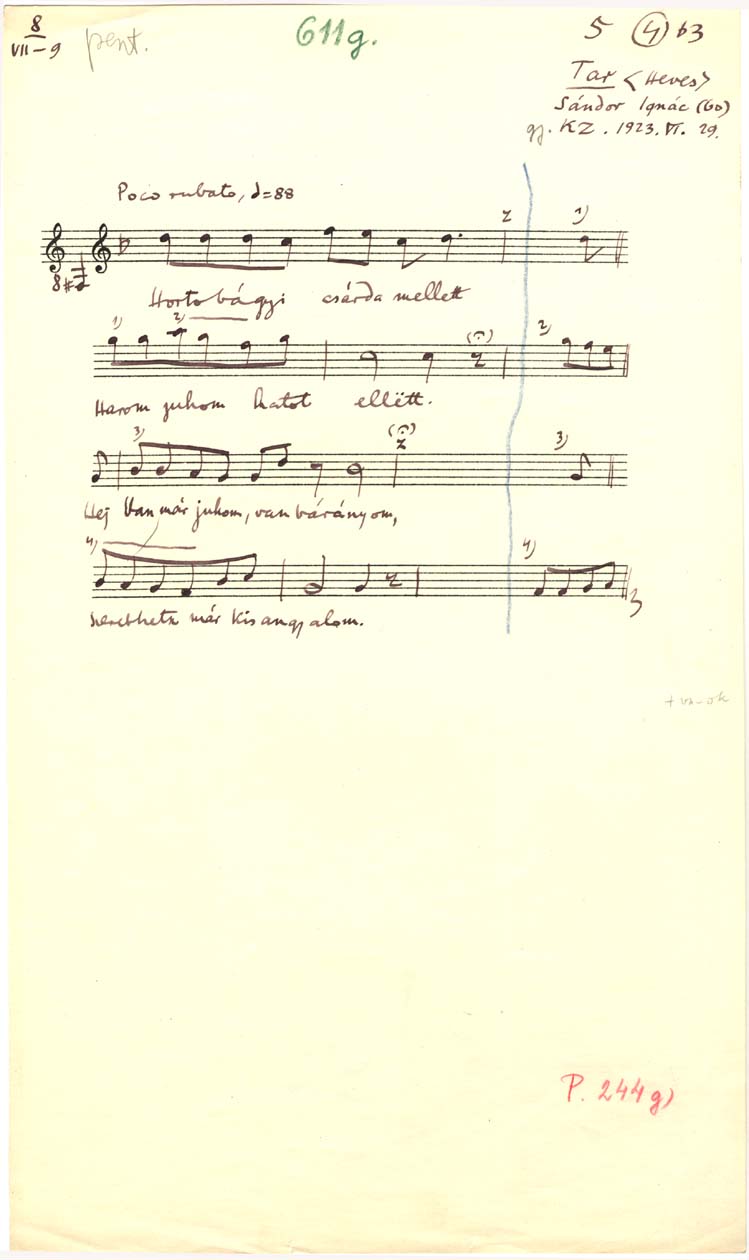 8
VII-9 pent. 611g. 5 (4) b3
Tar <Heves>
Sándor Ignác (60)
gy. KZ. 1923. VI. 29.
Poco rubato, =88
1)
8
Hortobágyi csárda mellett
1) 2) 2)
Harom juhom hatot ellëtt.
3) 3)
Hej Van már juhom, van bárányom,
4) 4)
már kis angyalom.
P. 244g)